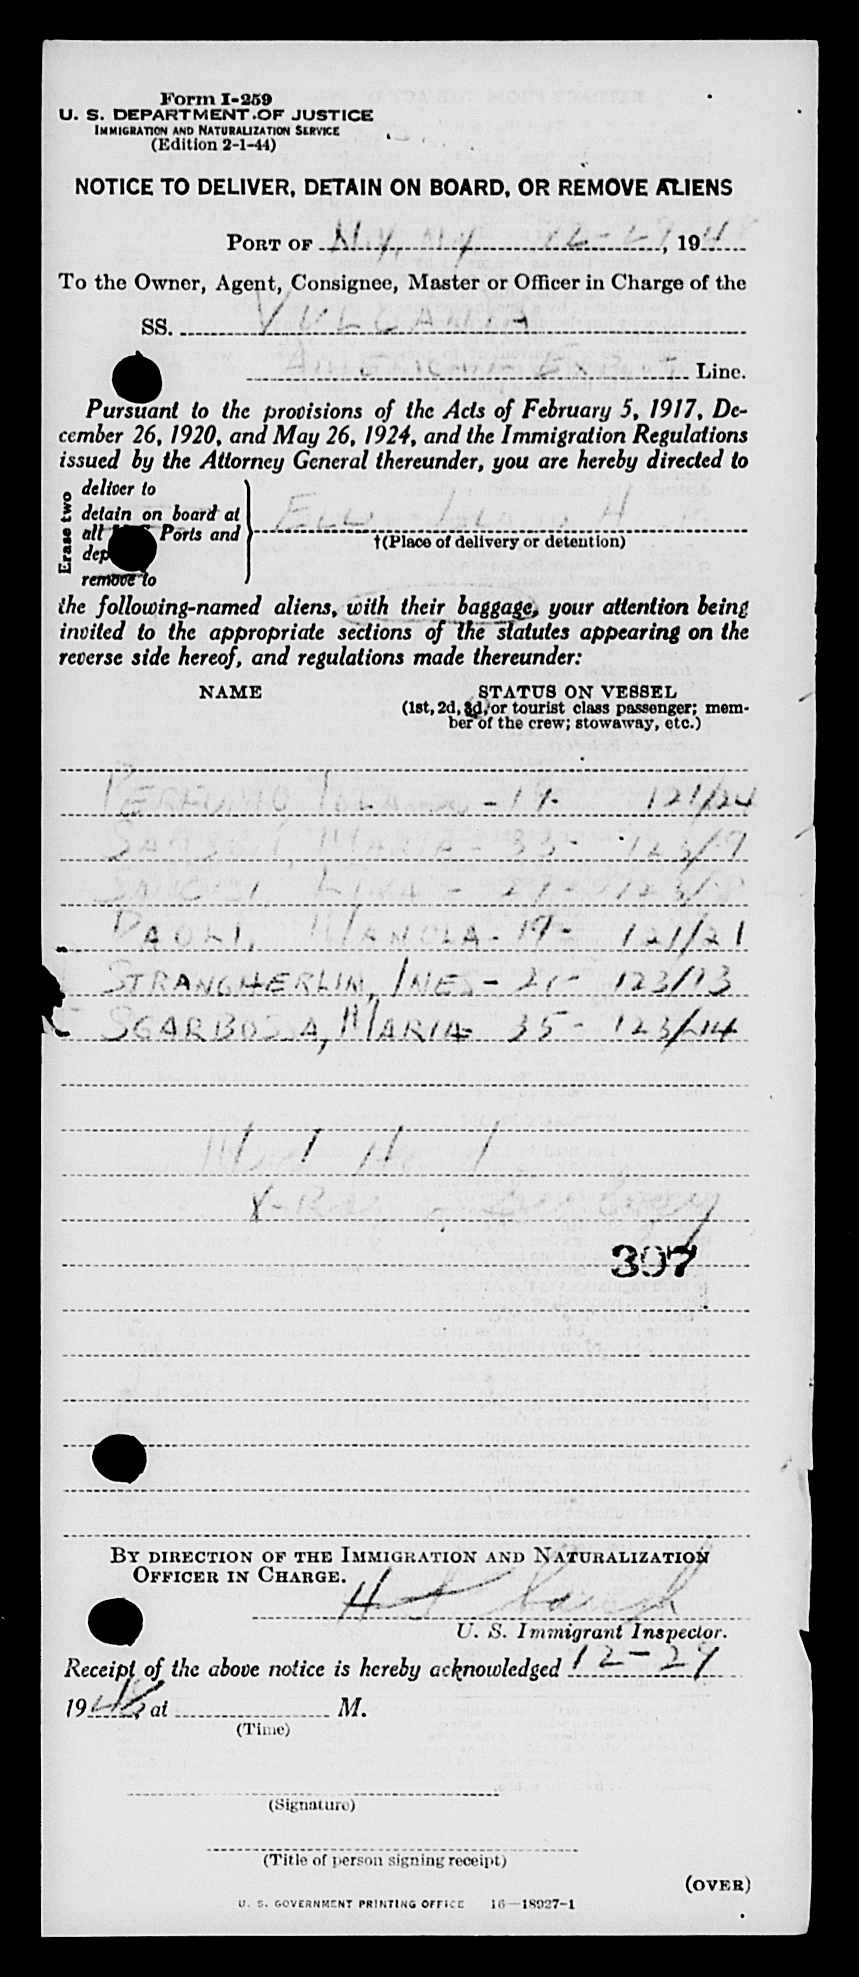 Form I-259
U. S. DEPARTMENT OF JUSTICE
IMMIGRATION AND NATURALIZATION SERVICE
(Edition 2-1-44)
NOTICE TO DELIVER, DETAIN ON BOARD, OR REMOVE ALIENS
PORT OF N.Y., N.Y. 12-29, 1948
To the Owner, Agent, Consignee, Master or Officer in Charge of the
SS. VULCANIA
AMERICAN EXPORT Line.
Pursuant to the provisions of the Acts of February 5, 1917, De-
cember 26, 1920, and May 26, 1924, and the Immigration Regulations
issued by the Attorney General thereunder, you are hereby directed to
Erase two
deliver to
detain on board at
all Ports and
remove to
†(Place of delivery or detention)
the following-named aliens, with their baggage, your attention being
invited to the appropriate sections of the statutes appearing on the
reverse side hereof, and regulations made thereunder:
NAME STATUS ON VESSEL
(1st, 2d, 3d, or tourist class passenger; mem-
ber of the crew; stowaway, etc.)
- 19- 121/24
MARIA - 33-
LINA -
PAOLI, MANOLA - 19- 121/21
STRANGHERLIN, INES - 21- 123/13
SGARBOSSA, MARIA - 35- 123/14
X-Ray
397
BY DIRECTION OF THE IMMIGRATION AND NATURALIZATION
OFFICER IN CHARGE.
U. S. Immigrant Inspector.
Receipt of the above notice is hereby acknowledged 12-29
1948, at M.
(Time)
(Signature)
(Title of person signing receipt)
(OVER)
U. S. GOVERNMENT PRINTING OFFICE 16—18927-1